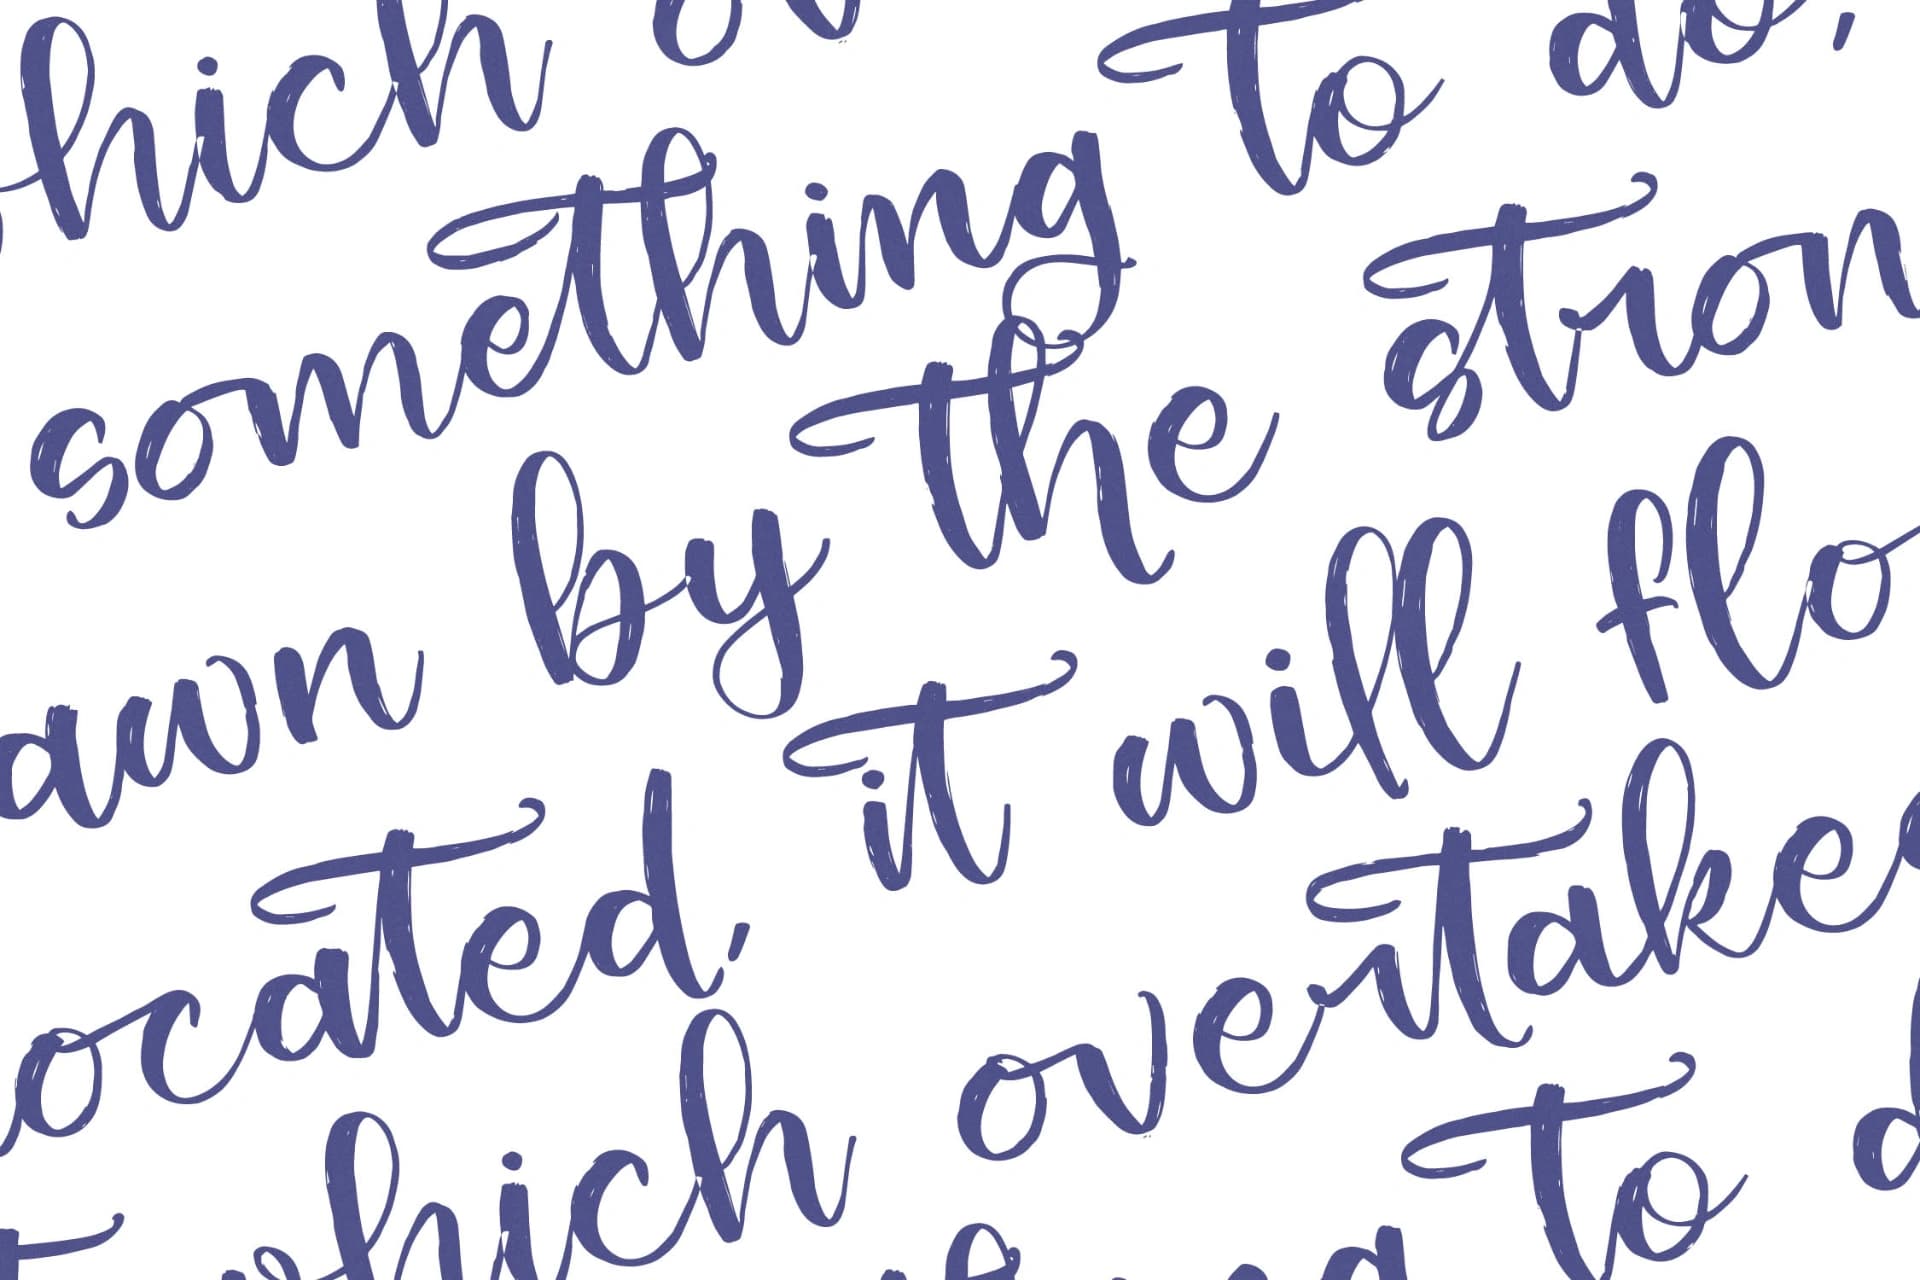 hich ov
something to do,
awn by the stron
ocated, it will flo
which overtake
to d